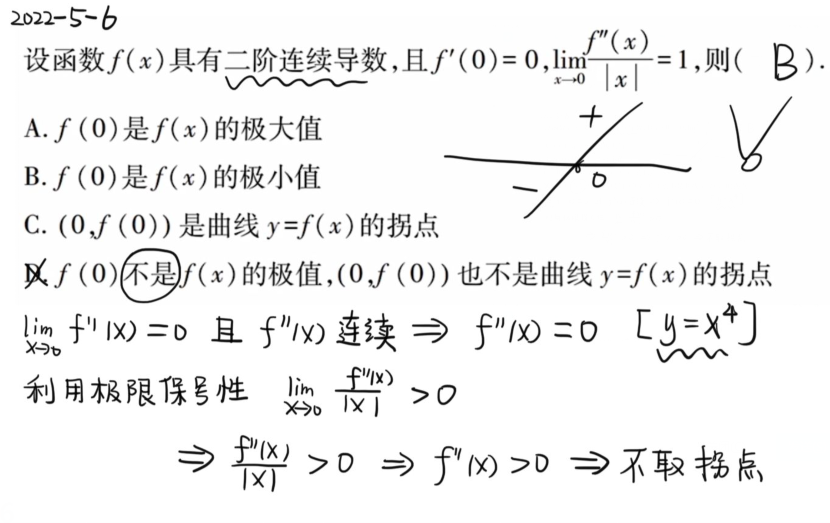 2022-5-6
设函数f(x)具有二阶连续导数,且f′(0)=0,lim x→0 f″(x)/|x|=1,则( B ).
A. f(0)是f(x)的极大值
B. f(0)是f(x)的极小值
C. (0,f(0))是曲线y=f(x)的拐点
D. f(0)不是f(x)的极值,(0,f(0))也不是曲线y=f(x)的拐点
+
- 0
lim x→0 f″(x)=0 且 f″(x)连续 ⇒ f″(x)=0 [y=x⁴]
利用极限保号性 lim x→0 f″(x)/|x| >0
⇒ f″(x)/|x| >0 ⇒ f″(x)>0 ⇒ 不取拐点